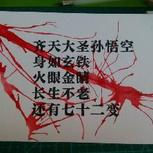 齐天大圣孙悟空
身如玄铁
火眼金睛
长生不老
还有七十二变